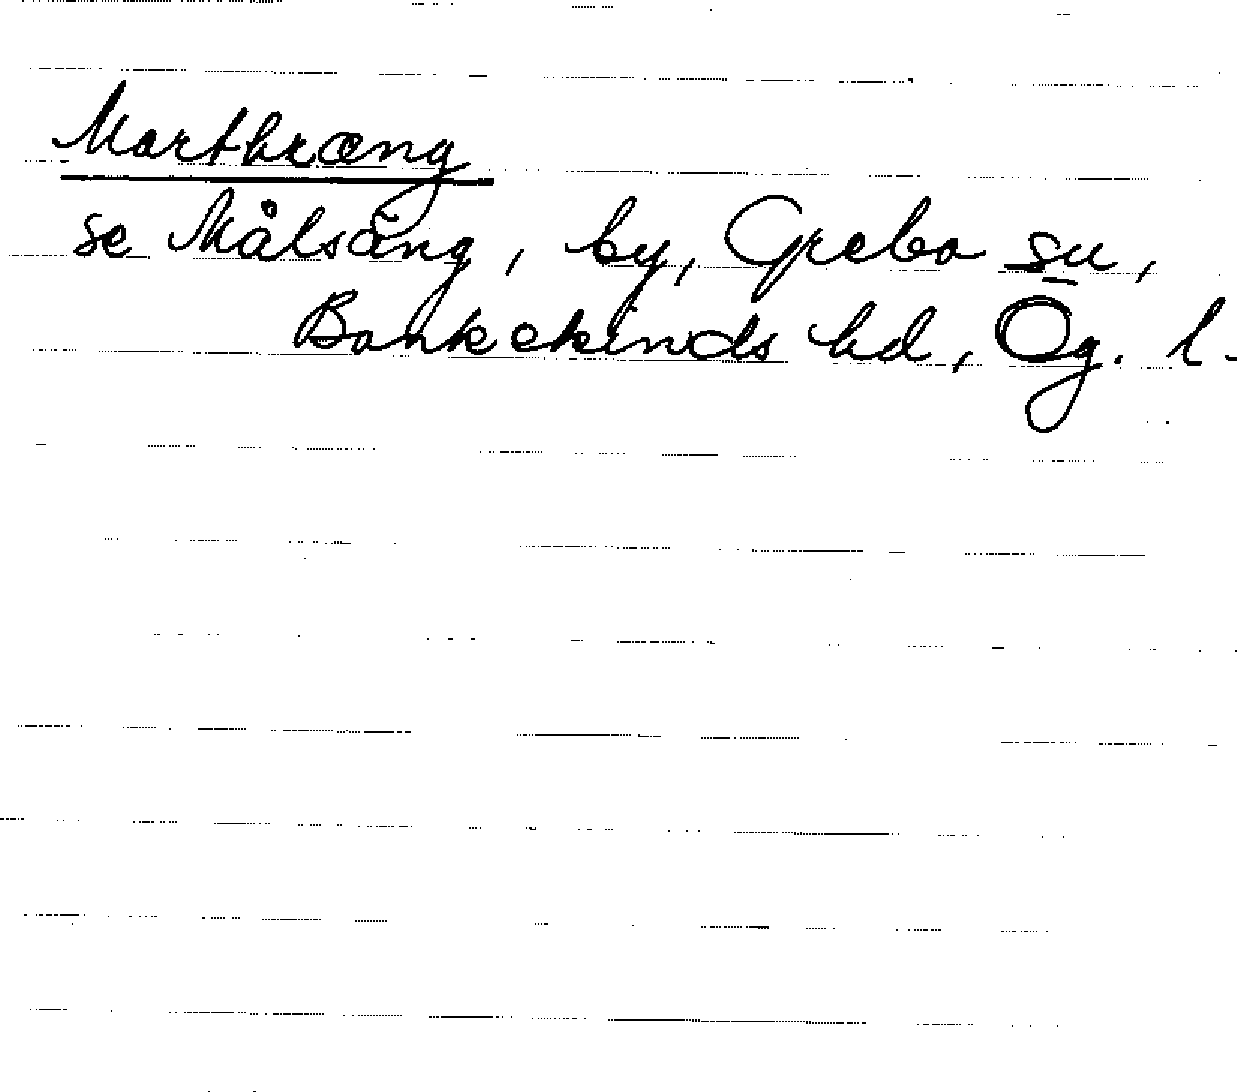 Marthræng
se Målsäng, by, Grebo su,
Bankekinds hd, Ög. l.